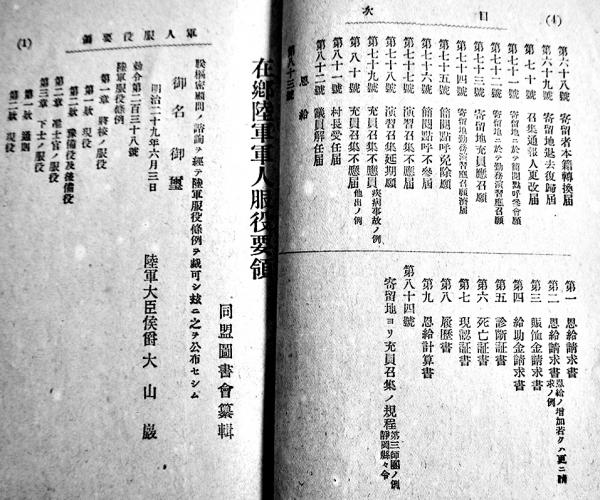 (4)
目次
第六十八號 寄留者本籍轉換屆
第六十九號 寄留地退去復歸屆
第七十號 召集通報人更改屆
第七十一號 寄留地ニ於テ簡閱點呼參會願
第七十二號 寄留地ニ於テ勤務演習應召願
第七十三號 寄留地充員應召願
第七十四號 寄留地勤務演習應召願濟屆
第七十五號 簡閱點呼免除願
第七十六號 簡閱點呼不參屆
第七十七號 演習召集不應屆
第七十八號 演習召集延期願
第七十九號 充員召集不應屆疾病事故ノ例
第八十號 充員召集不應屆他出ノ例
第八十一號 村長受任屆
第八十二號 議員解任屆
恩給
第八十三號
第一 恩給請求書
第二 恩給請求書恩給ノ增加若クハ更ニ請求ノ例
第三 賑恤金請求書
第四 給助金請求書
第五 診斷証書
第六 死亡証書
第七 現認証書
第八 履歷書
第九 恩給計算書
第八十四號
寄留地ヨリ充員召集ノ規程第三師團ノ例靜岡縣々令
軍人服役要領
(1)
在鄉陸軍軍人服役要領
同盟圖書會纂輯
朕樞密顧問ノ諮詢ヲ經テ陸軍服役條例ヲ裁可シ玆ニ之ヲ公布セシム
御名御璽
明治二十九年六月三日
陸軍大臣侯爵大山巖
勅令第二百三十八號
陸軍服役條例
第一章 將校ノ服役
第一款 現役
第二款 豫備役及後備役
第二章 準士官ノ服役
第三章 下士ノ服役
第一款 通則
第二款 現役